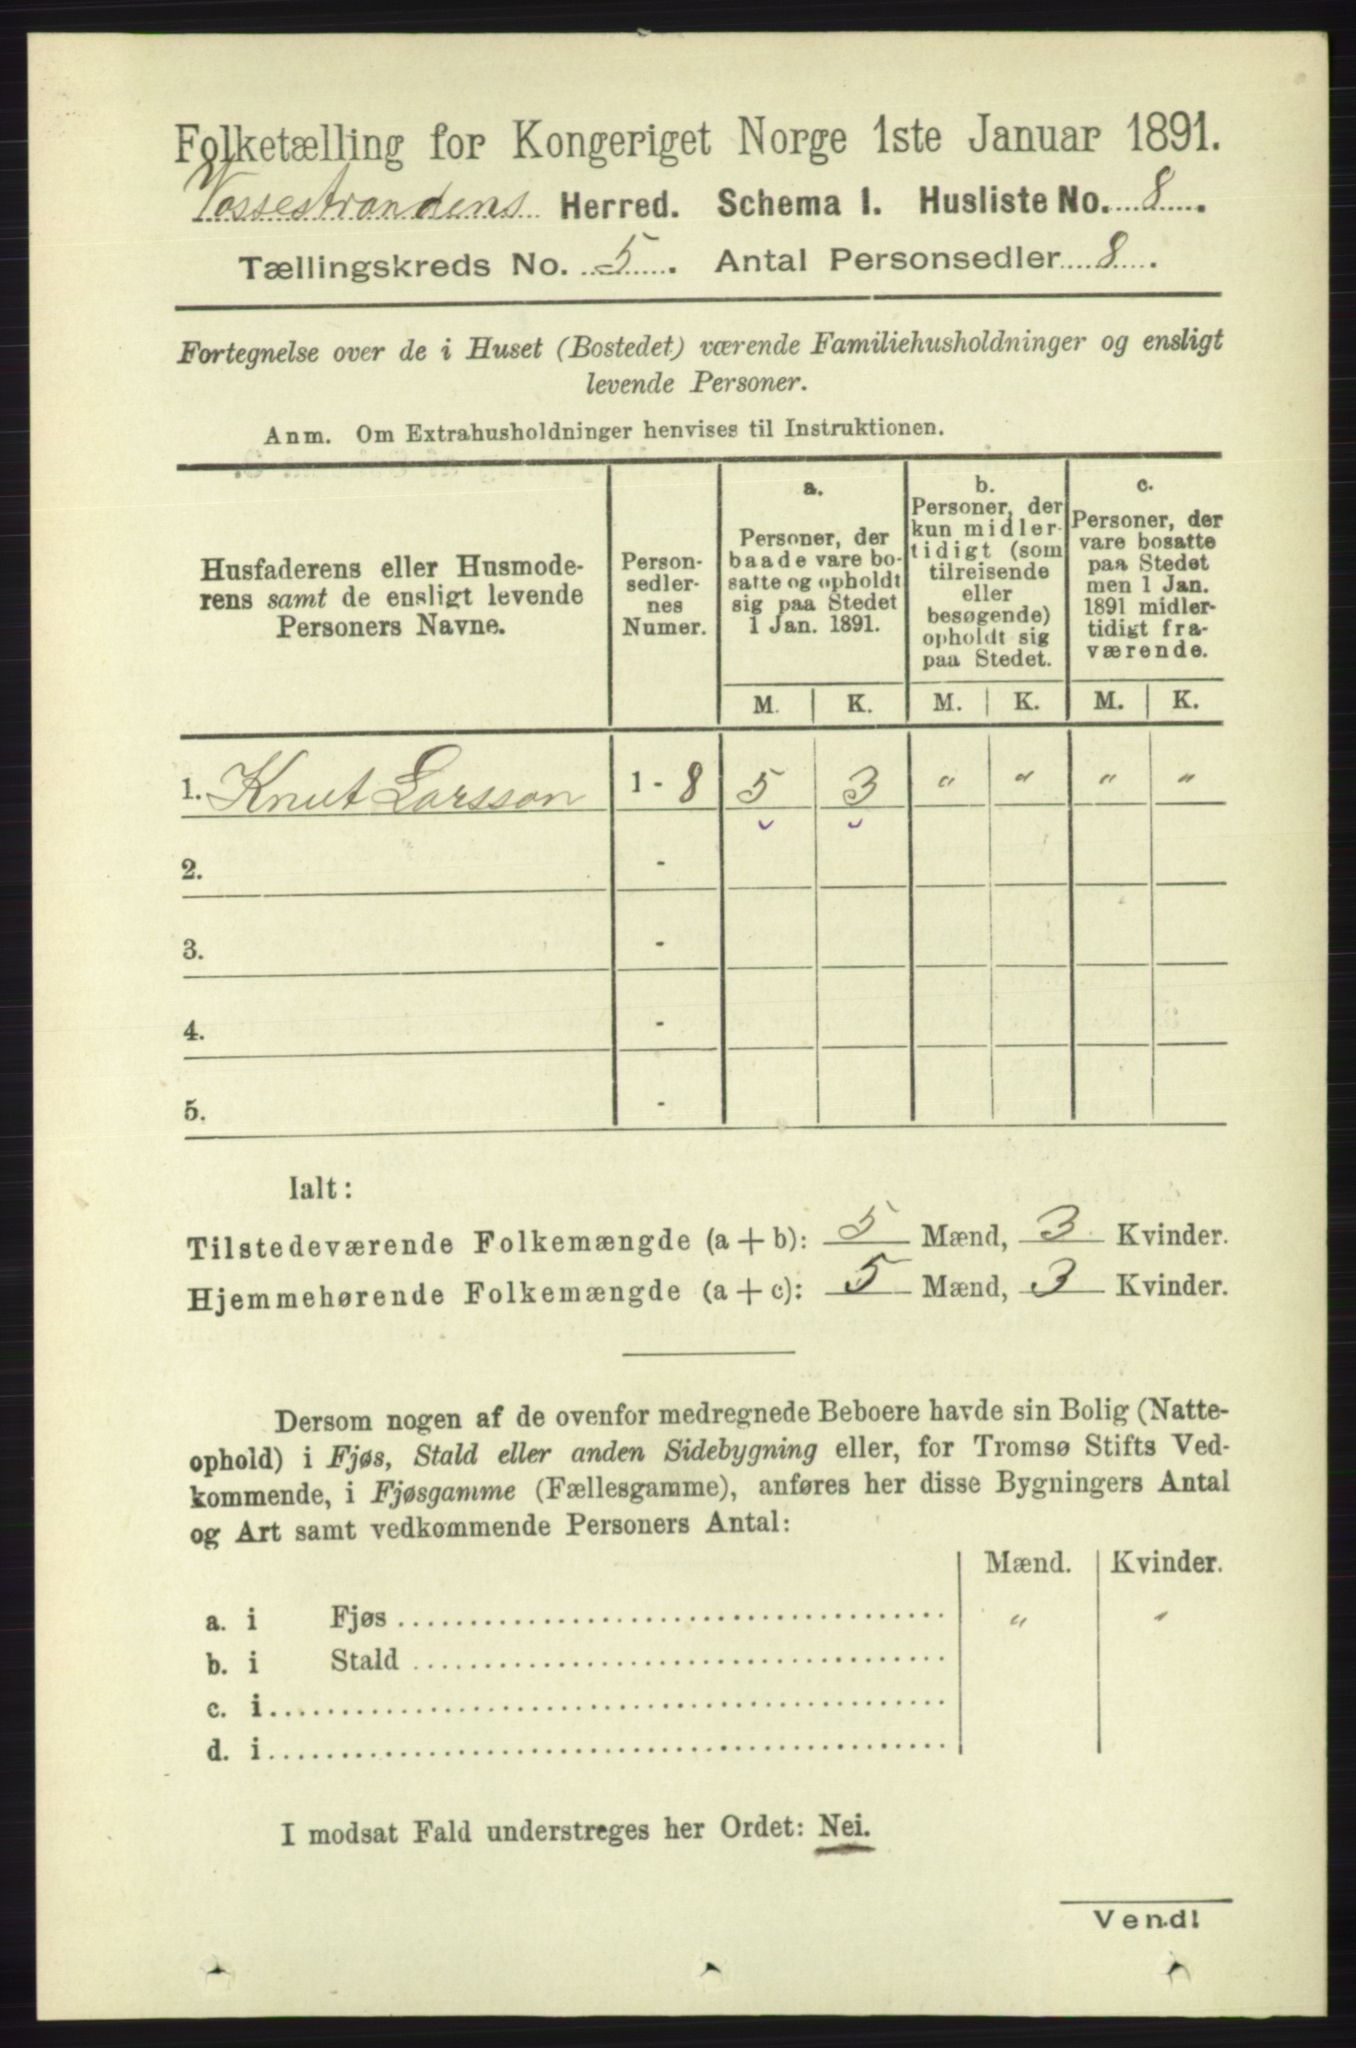 Folketælling for Kongeriget Norge 1ste Januar 1891.
Vossestrandens Herred. Schema 1. Husliste No. 8.
Tællingskreds No. 5. Antal Personsedler 8.
Fortegnelse over de i Huset (Bostedet) værende Familiehusholdninger og ensligt
levende Personer.
Anm. Om Extrahusholdninger henvises til Instruktionen.
Husfaderens eller Husmode-
rens samt de ensligt levende
Personers Navne.
Person-
sedler-
nes
Numer.
a.
Personer, der
baade vare bo-
satte og opholdt
sig paa Stedet
1 Jan. 1891.
b.
Personer, der
kun midler-
tidigt (som
tilreisende
eller
besøgende)
opholdt sig
paa Stedet.
c.
Personer, der
vare bosatte
paa Stedet
men 1 Jan.
1891 midler-
tidigt fra-
værende.
M. K. M. K. M. K.
1. Knut Larsson 1 - 8 5 3 " " " "
2. -
3. -
4. -
5. -
Ialt:
Tilstedeværende Folkemængde (a + b): 5 Mænd, 3 Kvinder.
Hjemmehørende Folkemængde (a + c): 5 Mænd, 3 Kvinder.
Dersom nogen af de ovenfor medregnede Beboere havde sin Bolig (Natte-
ophold) i Fjøs, Stald eller anden Sidebygning eller, for Tromsø Stifts Ved-
kommende, i Fjøsgamme (Fællesgamme), anføres her disse Bygningers Antal
og Art samt vedkommende Personers Antal:
Mænd. Kvinder.
a. i Fjøs " "
b. i Stald
c. i
d. i
I modsat Fald understreges her Ordet: Nei.
Vend!